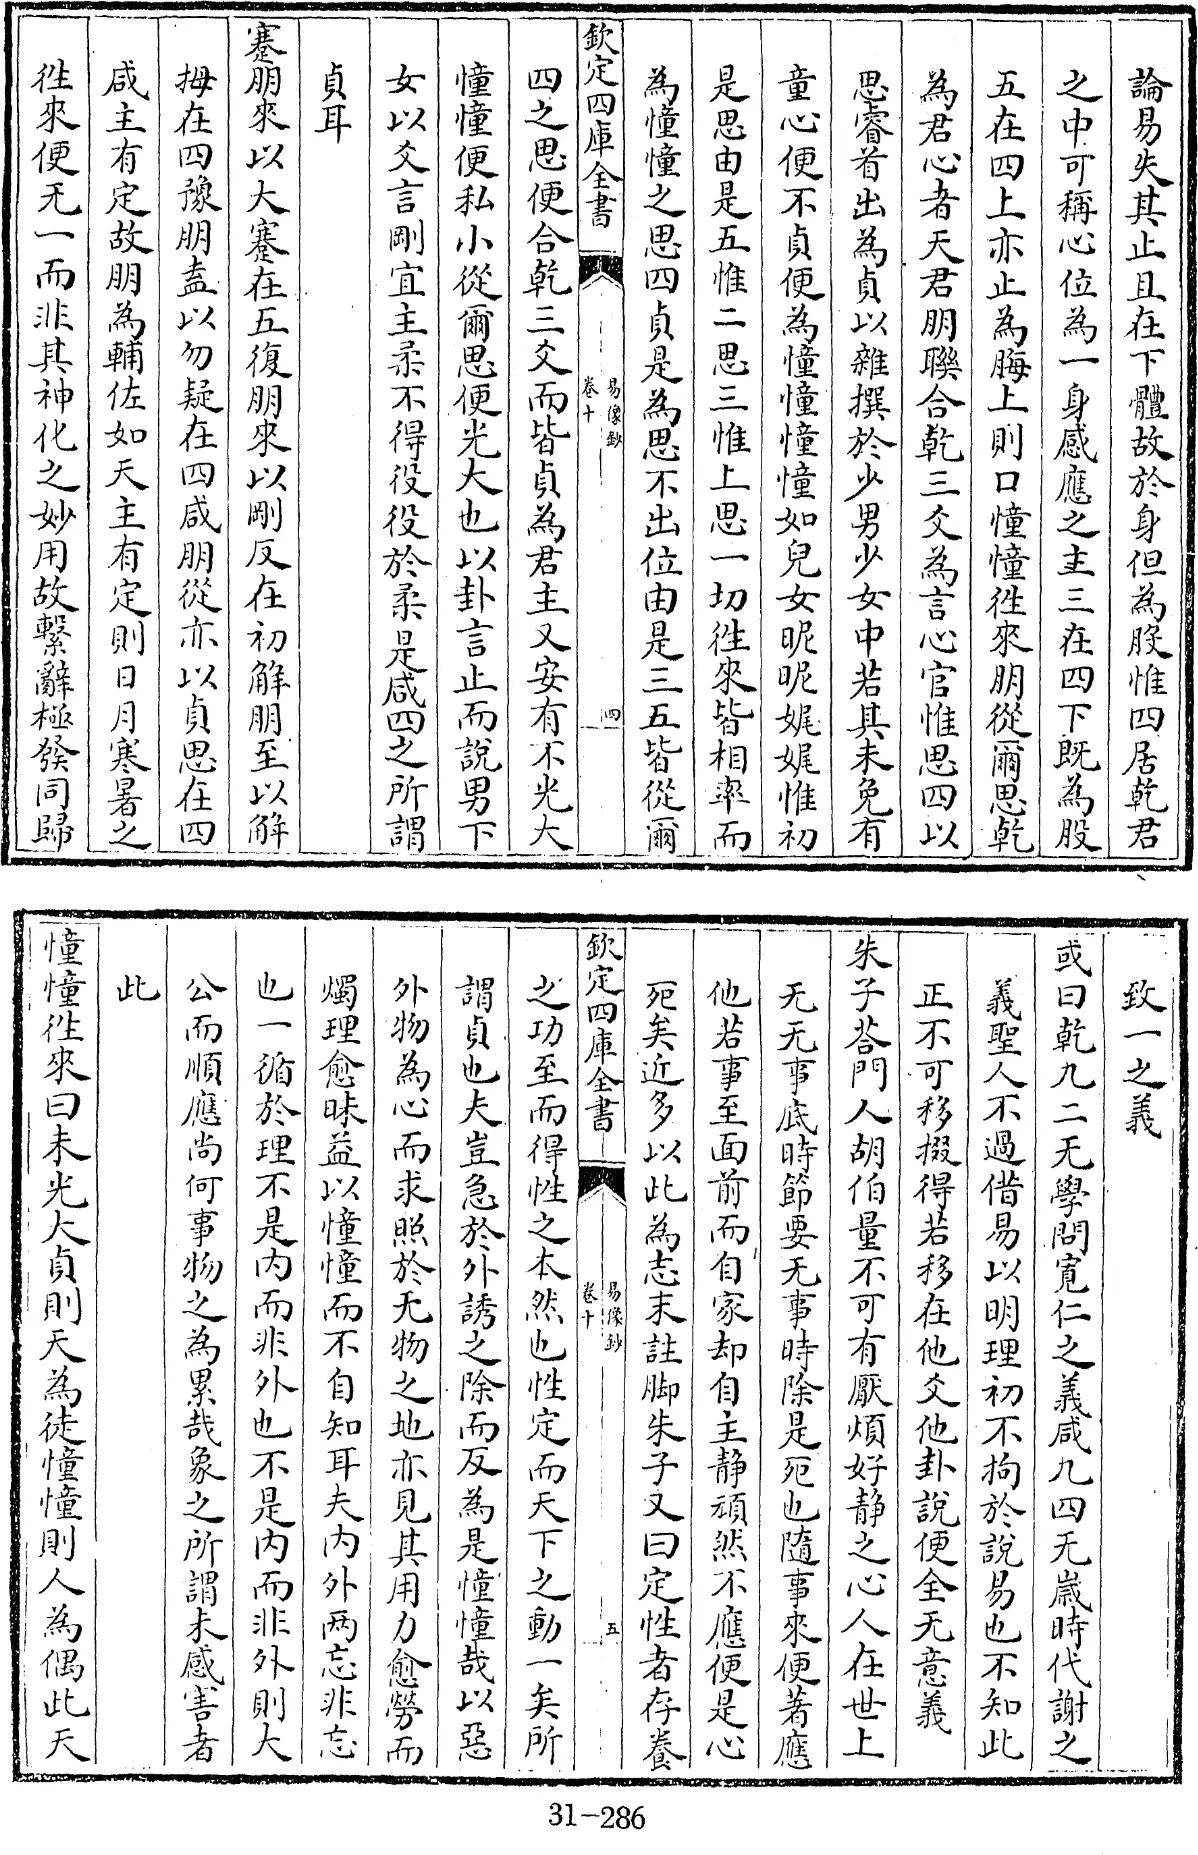 論易失其止且在下體故於身但為股惟四居乾君
之中可稱心位為一身感應之主三在四下既為股
五在四上亦止為脢上則口憧憧徃來朋從爾思乾
為君心者天君朋聯合乾三爻為言心官惟思四以
思睿首出為貞以雜撰於少男少女中若其未免有
童心便不貞便為憧憧憧憧如兒女昵昵娓娓惟初
是思由是五惟二思三惟上思一切徃來皆相率而
為憧憧之思四貞是為思不出位由是三五皆從爾
欽定四庫全書
易像鈔
卷十
四
四之思便合乾三爻而皆貞為君主又安有不光大
憧憧便私小從爾思便光大也以卦言止而說男下
女以爻言剛宜主柔不得役役於柔是咸四之所謂
貞耳
蹇朋來以大蹇在五復朋來以剛反在初解朋至以解
拇在四豫朋盍以勿疑在四咸朋從亦以貞思在四
咸主有定故朋為輔佐如天主有定則日月寒暑之
徃來便无一而非其神化之妙用故繫辭極發同歸
致一之義
或曰乾九二无學問寛仁之義咸九四无歲時代謝之
義聖人不過借易以明理初不拘於說易也不知此
正不可移掇得若移在他爻他卦說便全无意義
朱子荅門人胡伯量不可有厭煩好静之心人在世上
无无事底時節要无事時除是死也隨事來便著應
他若事至面前而自家却自主静頑然不應便是心
死矣近多以此為志末註脚朱子又曰定性者存養
欽定四庫全書
易像鈔
卷十
五
之功至而得性之本然也性定而天下之動一矣所
謂貞也夫豈急於外誘之除而反為是憧憧哉以惡
外物為心而求照於无物之地亦見其用力愈勞而
燭理愈昧益以憧憧而不自知耳夫内外两忘非忘
也一循於理不是内而非外也不是内而非外則大
公而順應尚何事物之為累哉象之所謂未感害者
此
憧憧徃來曰未光大貞則天為徒憧憧則人為偶此天
31-286